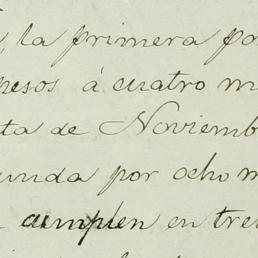 , la primera po
pesos á cuatro m
ta de Noviemb
unda por ocho m
cumplen en tre